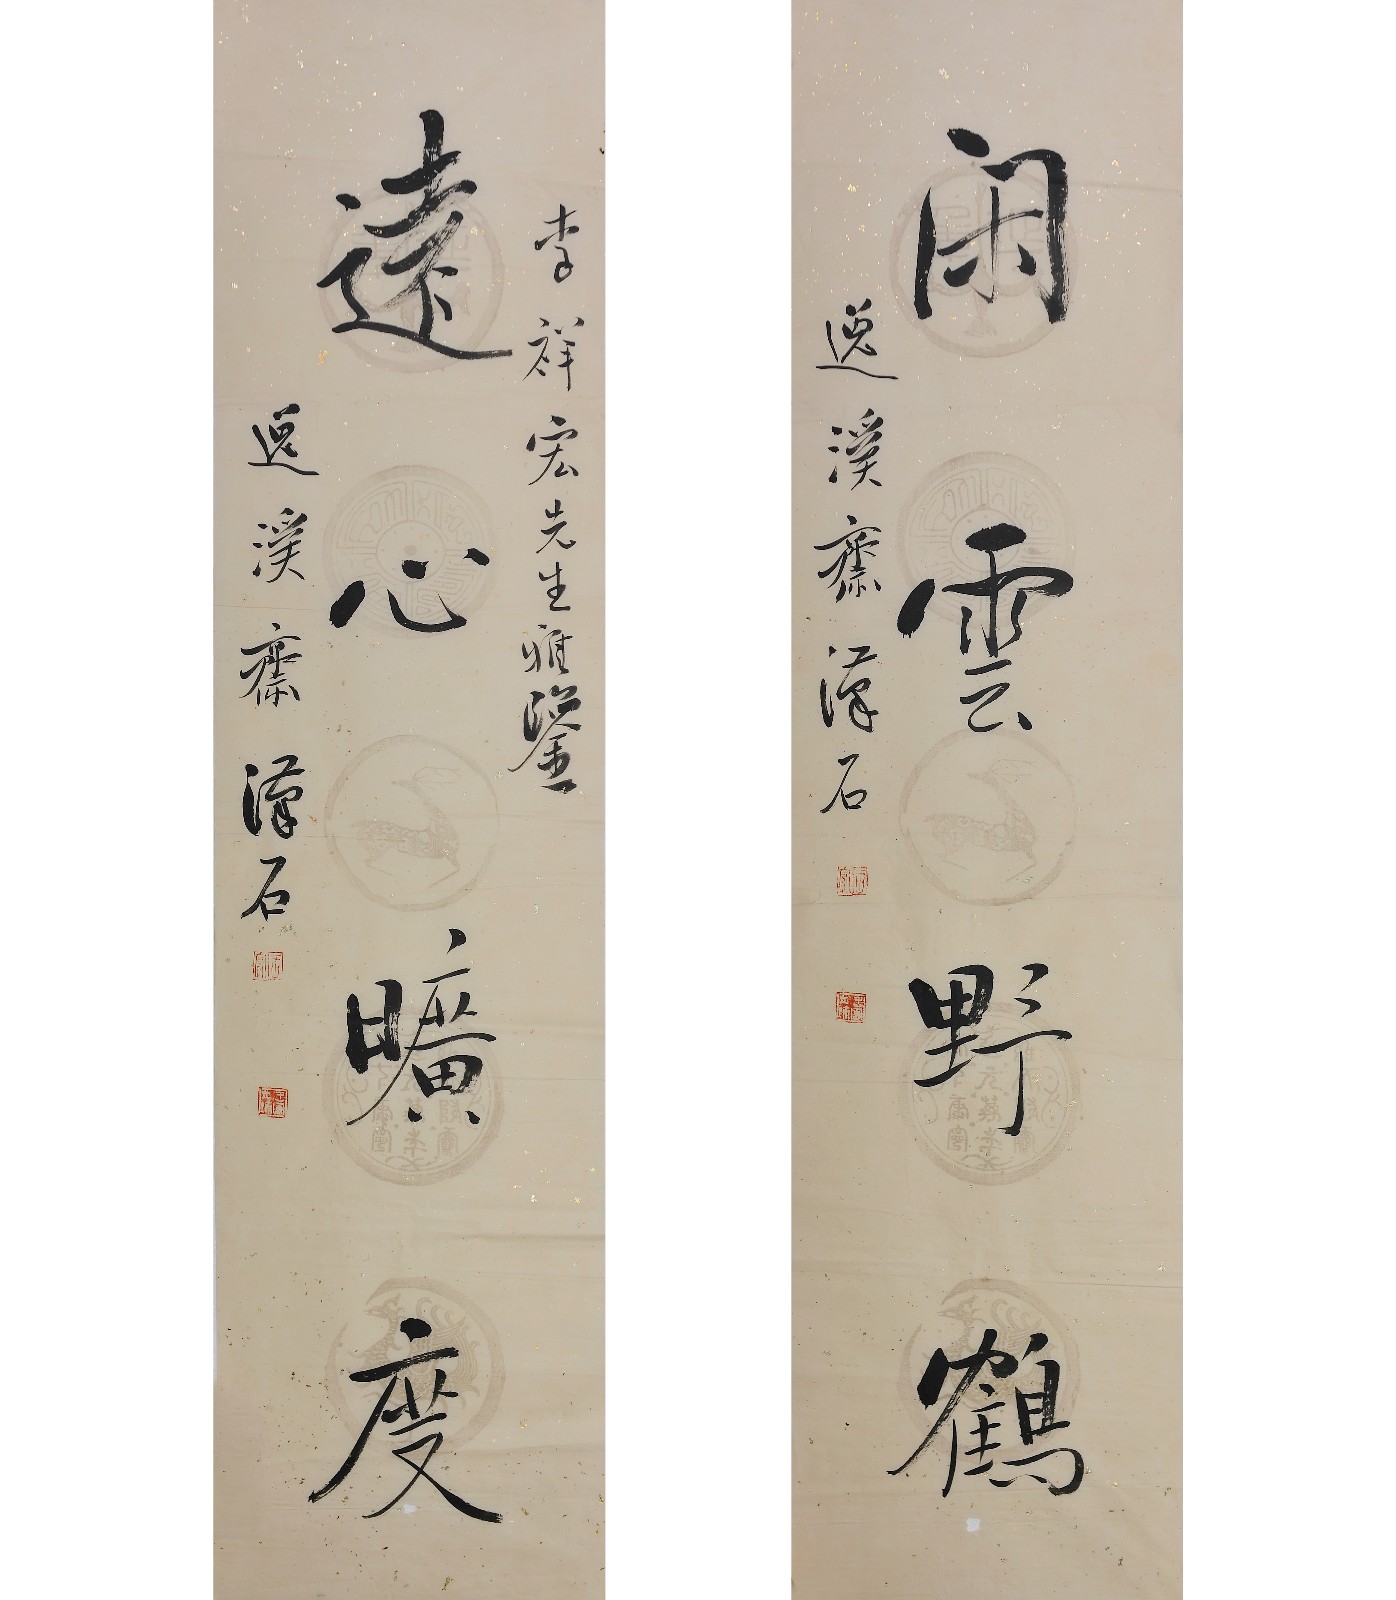 閑雲野鶴
逸溪齋漢石
李祥宏先生雅鑒
遠心曠度
逸溪齋漢石